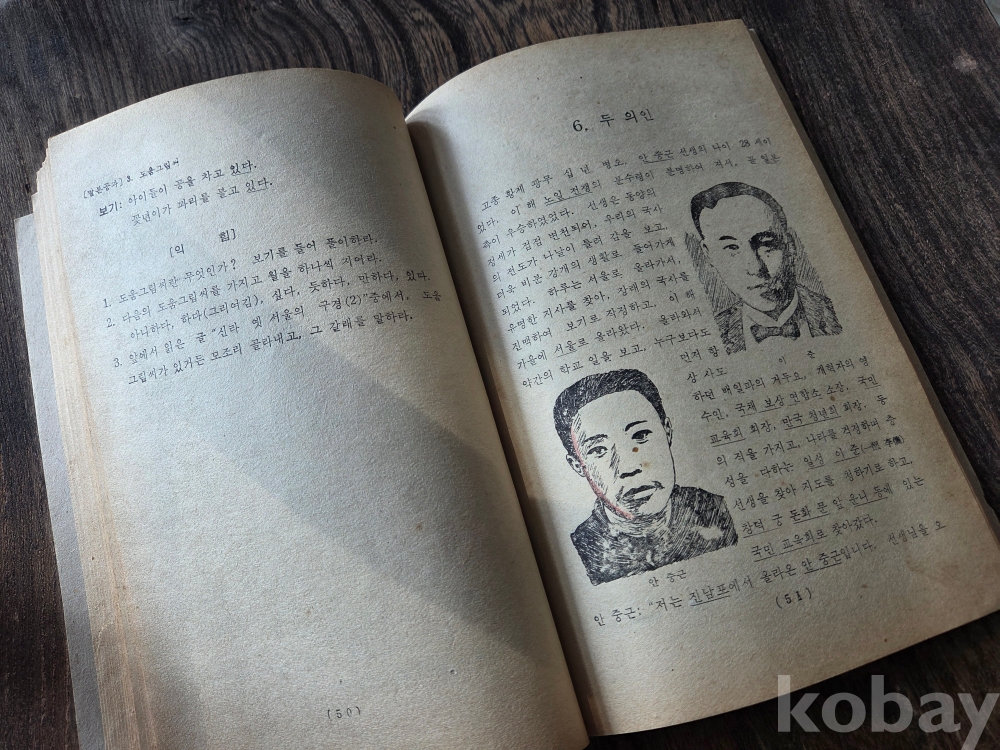 (말본공과) 3. 도움그림씨
보기: 아이들이 공을 차고 있다.
꽃년이가 파리를 불고 있다.
[익 힘]
1. 도움그림씨란 무엇인가? 보기를 들어 풀이하라.
2. 다음의 도움그림씨를 가지고 월을 하나씩 지어라.
아니하다, 하다(그리어김), 싶다, 듯하다, 만하다, 있다.
3. 앞에서 읽은 글 "신라 옛 서울의 구경(2)"중에서, 도움
그림씨가 있거든 모조리 골라내고, 그 갈래를 말하라.
(50)
6. 두 의인
고종 황제 광무 십 년 병오, 안 중근 선생의 나이 28 세이
었다. 이 해 노일 전쟁의 분수령이 분명하여 져서, 곧 일본
측이 우승하였었다. 선생은 동양의
정세가 점점 변천되어, 우리의 국사
의 전도가 나날이 틀려 감을 보고,
더욱 비분 강개의 생활로 들어가게
되었다. 하루는 서울로 올라가서,
유명한 지사를 찾아, 장래의 국사를
진맥하여 보기로 작정하고, 이 해
가을에 서울로 올라왔다. 올라와서
약간의 학교 일을 보고, 누구보다도
먼저 함
이 준
상 사도
하던 배일파의 거두요, 개혁자의 영
수인, 국채 보상 연합소 소장, 국민
교육회 회장, 만국 청년회 회장, 등
의 직을 가지고, 나라를 걱정하며 충
성을 다하는 일성 이 준(一醒 李儁)
선생을 찾아 지도를 청하기로 하고,
창덕 궁 돈화 문 앞 운니 동에 있는
국민 교육회로 찾아갔다.
안 중근
안 중근: "저는 진남포에서 올라온 안 중근입니다. 선생님을 오
(51)
kobay